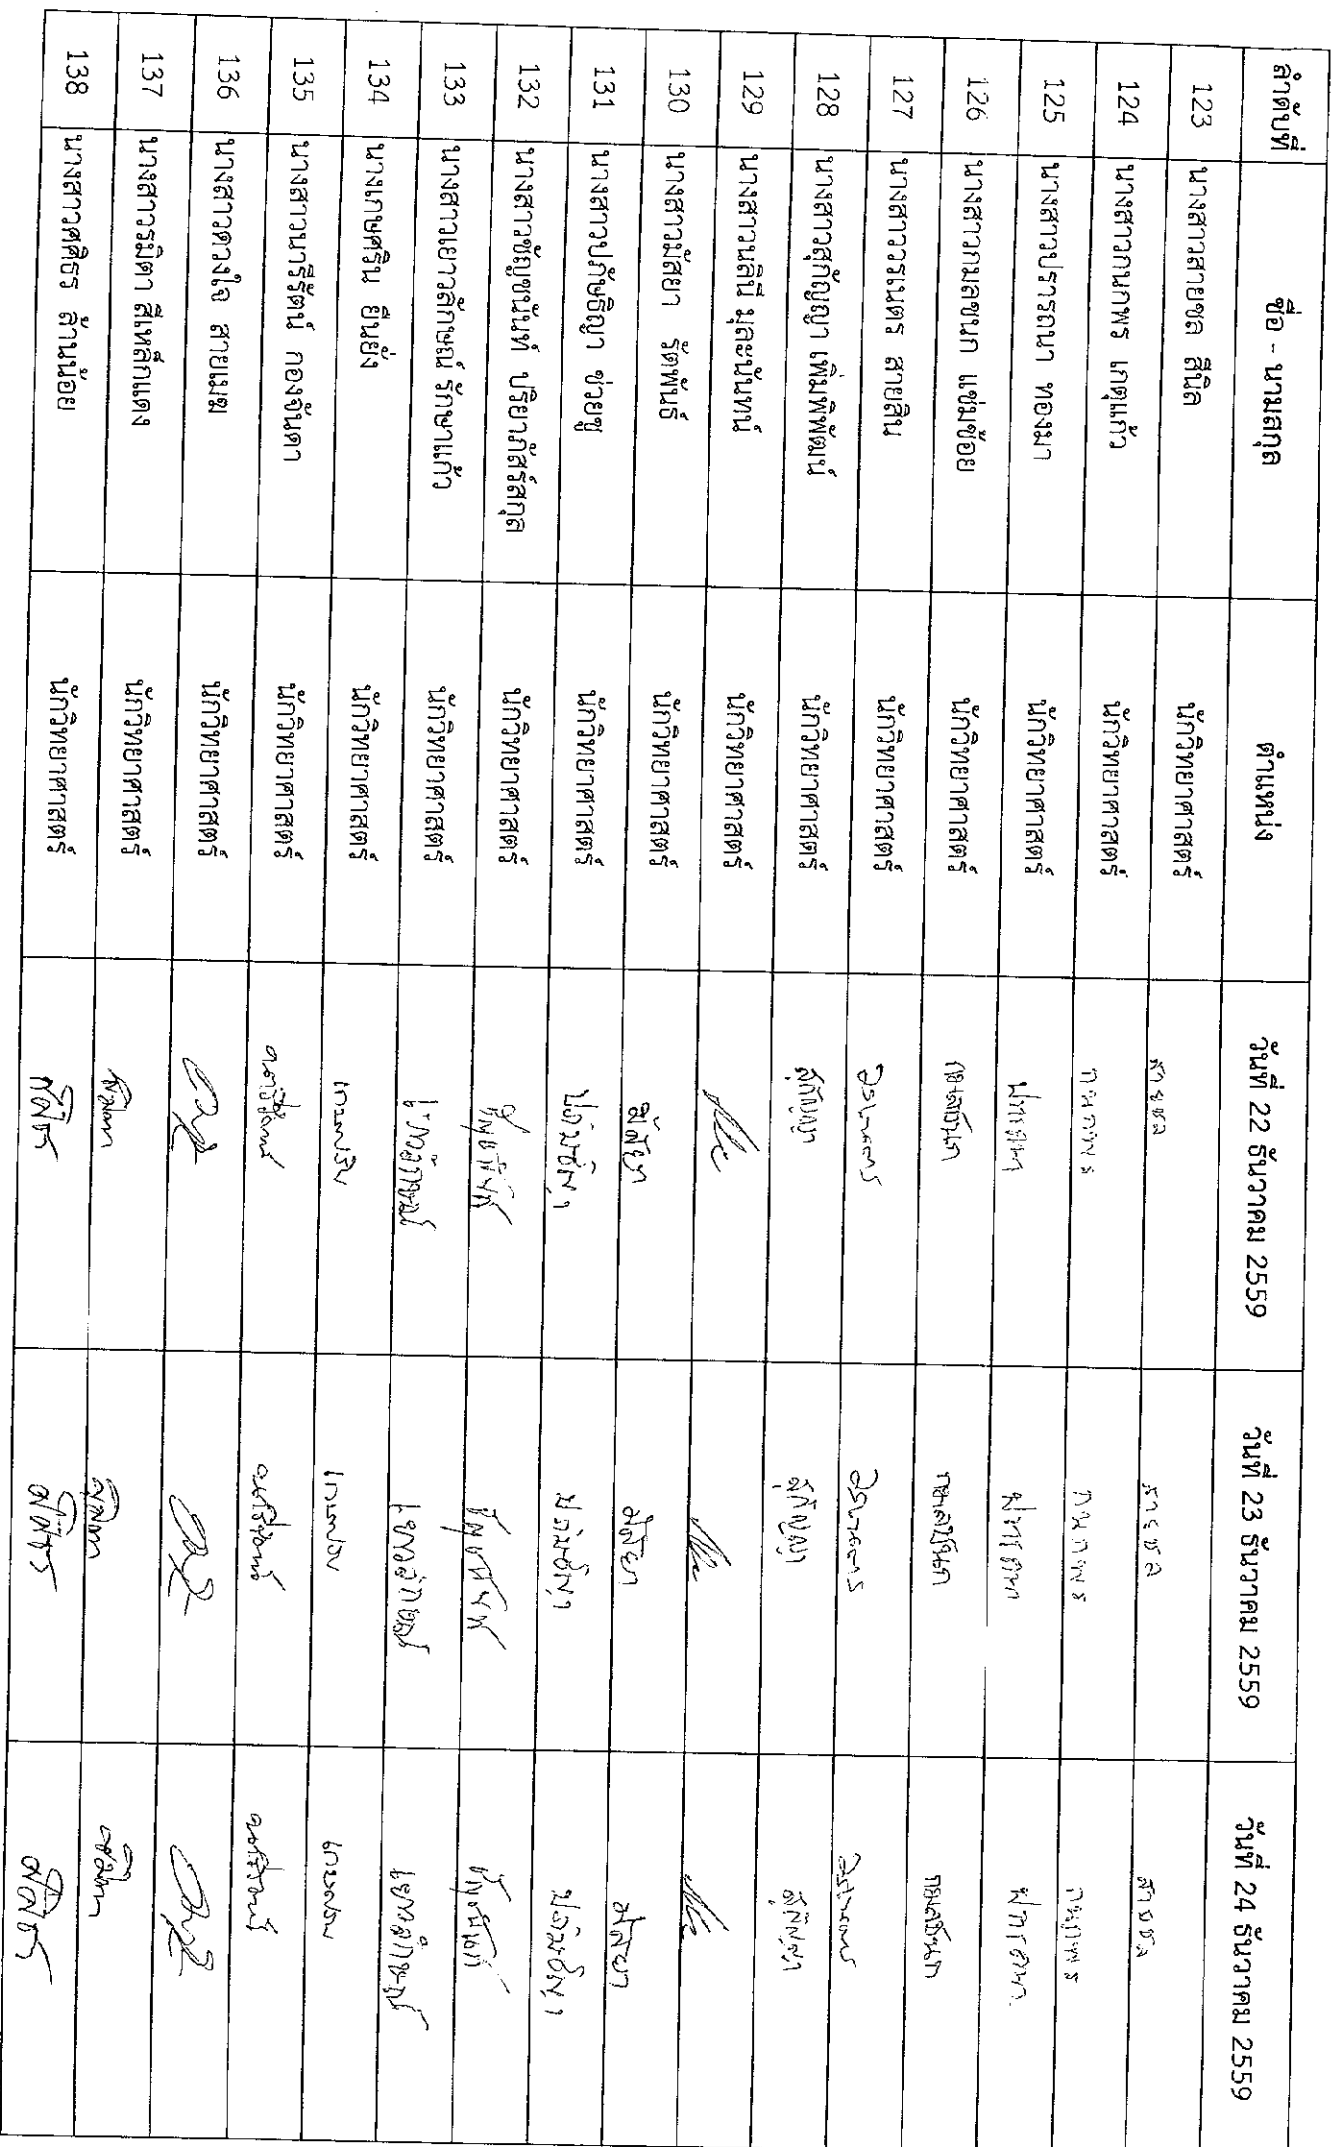 ลำดับที่ ชื่อ - นามสกุล ตำแหน่ง วันที่ 22 ธันวาคม 2559 วันที่ 23 ธันวาคม 2559 วันที่ 24 ธันวาคม 2559
123 นางสาวสายชล สีนิล นักวิทยาศาสตร์ สายชล สายชล สายชล
124 นางสาวกนกพร เกตุแก้ว นักวิทยาศาสตร์ กนกพร กนกพร กนกพร
125 นางสาวปรารถนา ทองมา นักวิทยาศาสตร์
126 นางสาวกมลชนก แช่มช้อย นักวิทยาศาสตร์ กมลชนก กมลชนก กมลชนก
127 นางสาววรเนตร สายสิน นักวิทยาศาสตร์ วรเนตร วรเนตร วรเนตร
128 นางสาวสุกัญญา เพิ่มพิพัฒน์ นักวิทยาศาสตร์ สุกัญญา สุกัญญา สุกัญญา
129 นางสาวนลินี มุละขันทน์ นักวิทยาศาสตร์
130 นางสาวมัสยา รัดพันธ์ นักวิทยาศาสตร์ มัสยา มัสยา มัสยา
131 นางสาวปภัษธิญา ช่วยชู นักวิทยาศาสตร์
132 นางสาวชัญชนันท์ ปริยาภัสร์สกุล นักวิทยาศาสตร์ ชัญชนันท์ ชัญชนันท์ ชัญชนันท์
133 นางสาวเยาวลักษณ์ รักษาแก้ว นักวิทยาศาสตร์ เยาวลักษณ์ เยาวลักษณ์ เยาวลักษณ์
134 นางเกษศริน ยืนยั่ง นักวิทยาศาสตร์ เกษศริน เกษศริน เกษศริน
135 นางสาวนารีรัตน์ กองจันดา นักวิทยาศาสตร์
136 นางสาวดวงใจ สายเมฆ นักวิทยาศาสตร์
137 นางสาวรมิตา สีเหล็กแดง นักวิทยาศาสตร์
138 นางสาวศศิธร ล้านน้อย นักวิทยาศาสตร์ ศศิธร ศศิธร ศศิธร